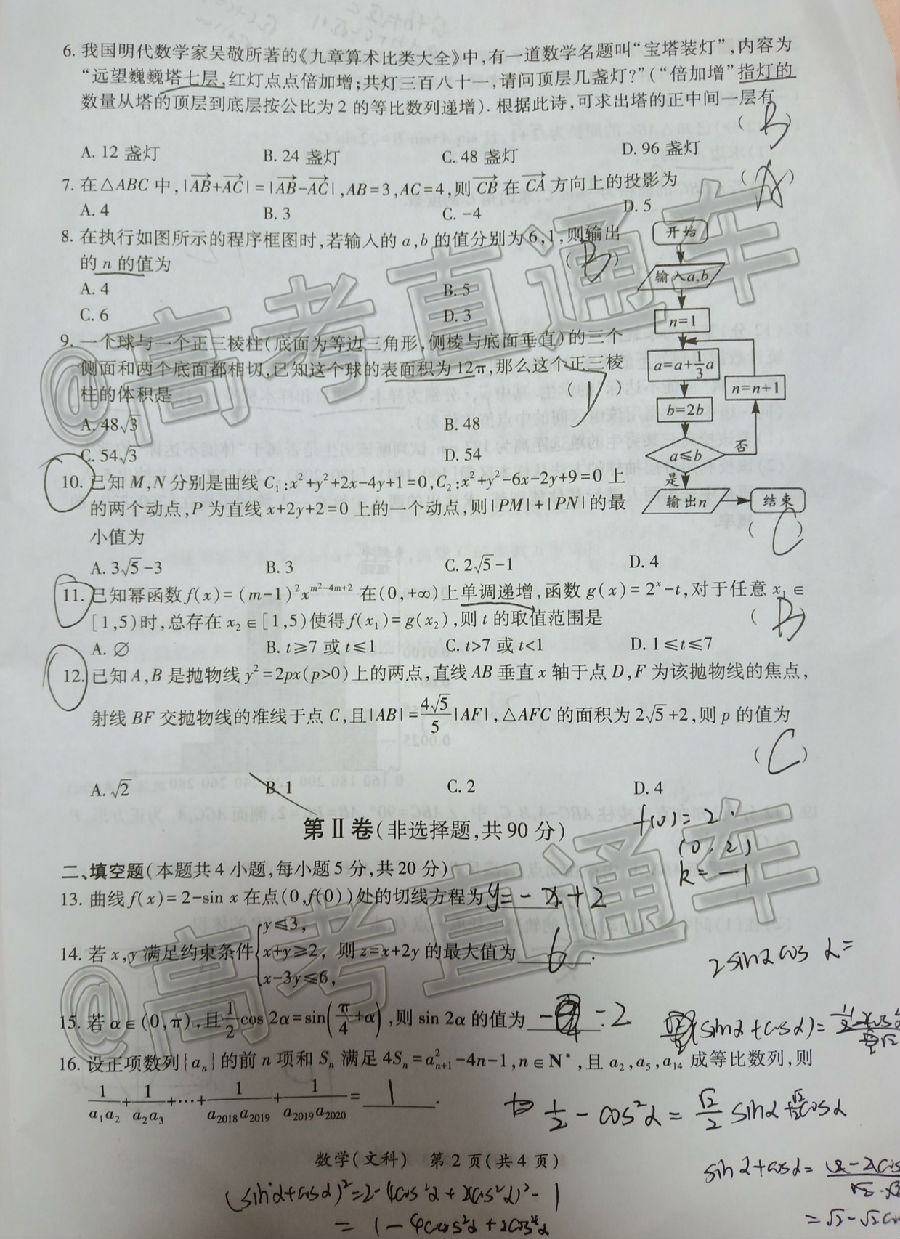 6. 我国明代数学家吴敬所著的《九章算术比类大全》中,有一道数学名题叫“宝塔装灯”,内容为
“远望巍巍塔七层,红灯点点倍加增;共灯三百八十一,请问顶层几盏灯?”(“倍加增”指灯的
数量从塔的顶层到底层按公比为2的等比数列递增). 根据此诗,可求出塔的正中间一层有
( B )
A. 12 盏灯 B. 24 盏灯 C. 48 盏灯 D. 96 盏灯
7. 在△ABC 中,|AB+AC|=|AB-AC|,AB=3,AC=4,则 CB 在 CA 方向上的投影为 ( A )
A. 4 B. 3 C. -4 D. 5
8. 在执行如图所示的程序框图时,若输入的 a,b 的值分别为 6,1,则输出
的 n 的值为 ( B )
A. 4 B. 5
C. 6 D. 3
开始
输入a,b
n=1
a=a+1/3a
n=n+1
b=2b
a≤b
否
是
输出n
结束
9. 一个球与一个正三棱柱(底面为等边三角形,侧棱与底面垂直)的三个
侧面和两个底面都相切,已知这个球的表面积为12π,那么这个正三棱
柱的体积是 ( )
A. 48√3 B. 48
C. 54√3 D. 54
10. 已知 M,N 分别是曲线 C₁:x²+y²+2x-4y+1=0,C₂:x²+y²-6x-2y+9=0 上
的两个动点,P 为直线 x+2y+2=0 上的一个动点,则|PM|+|PN|的最
小值为 ( C )
A. 3√5-3 B. 3 C. 2√5-1 D. 4
11. 已知幂函数 f(x)=(m-1)²x^(m²-4m+2) 在(0,+∞)上单调递增,函数 g(x)=2ˣ-t,对于任意 x₁∈
[1,5)时,总存在 x₂∈[1,5)使得 f(x₁)=g(x₂),则 t 的取值范围是 ( B )
A. ∅ B. t≥7 或 t≤1 C. t>7 或 t<1 D. 1≤t≤7
12. 已知 A,B 是抛物线 y²=2px(p>0)上的两点,直线 AB 垂直 x 轴于点 D,F 为该抛物线的焦点,
射线 BF 交抛物线的准线于点 C,且|AB|=4√5/5|AF|,△AFC 的面积为 2√5+2,则 p 的值为
( C )
A. √2 B. 1 C. 2 D. 4
第Ⅱ卷(非选择题,共90分)
f(0)=2
(0,2)
k=-1
二、填空题(本题共4小题,每小题5分,共20分)
13. 曲线 f(x)=2-sin x 在点(0,f(0))处的切线方程为 y=-x+2
14. 若 x,y 满足约束条件{y≤3, x+y≥2, x-3y≤6, 则 z=x+2y 的最大值为 6 .
2sinαcosα=
15. 若 α∈(0,π),且 1/2cos 2α=sin(π/4+α),则 sin 2α 的值为 -2
(sinα+cosα)=
16. 设正项数列{aₙ}的前 n 项和 Sₙ 满足 4Sₙ=a²ₙ₊₁-4n-1,n∈N*,且 a₂,a₅,a₁₄ 成等比数列,则
1/a₁a₂+1/a₂a₃+…+1/a₂₀₁₈a₂₀₁₉+1/a₂₀₁₉a₂₀₂₀= 1 .
1/2-cos²α=√2/2 sinα √2/2cosα
数学(文科) 第2页(共4页)
sinα+cosα=
(sinα+cosα)²=
=1-4cos²α+
@高考直通车
@高考直通车